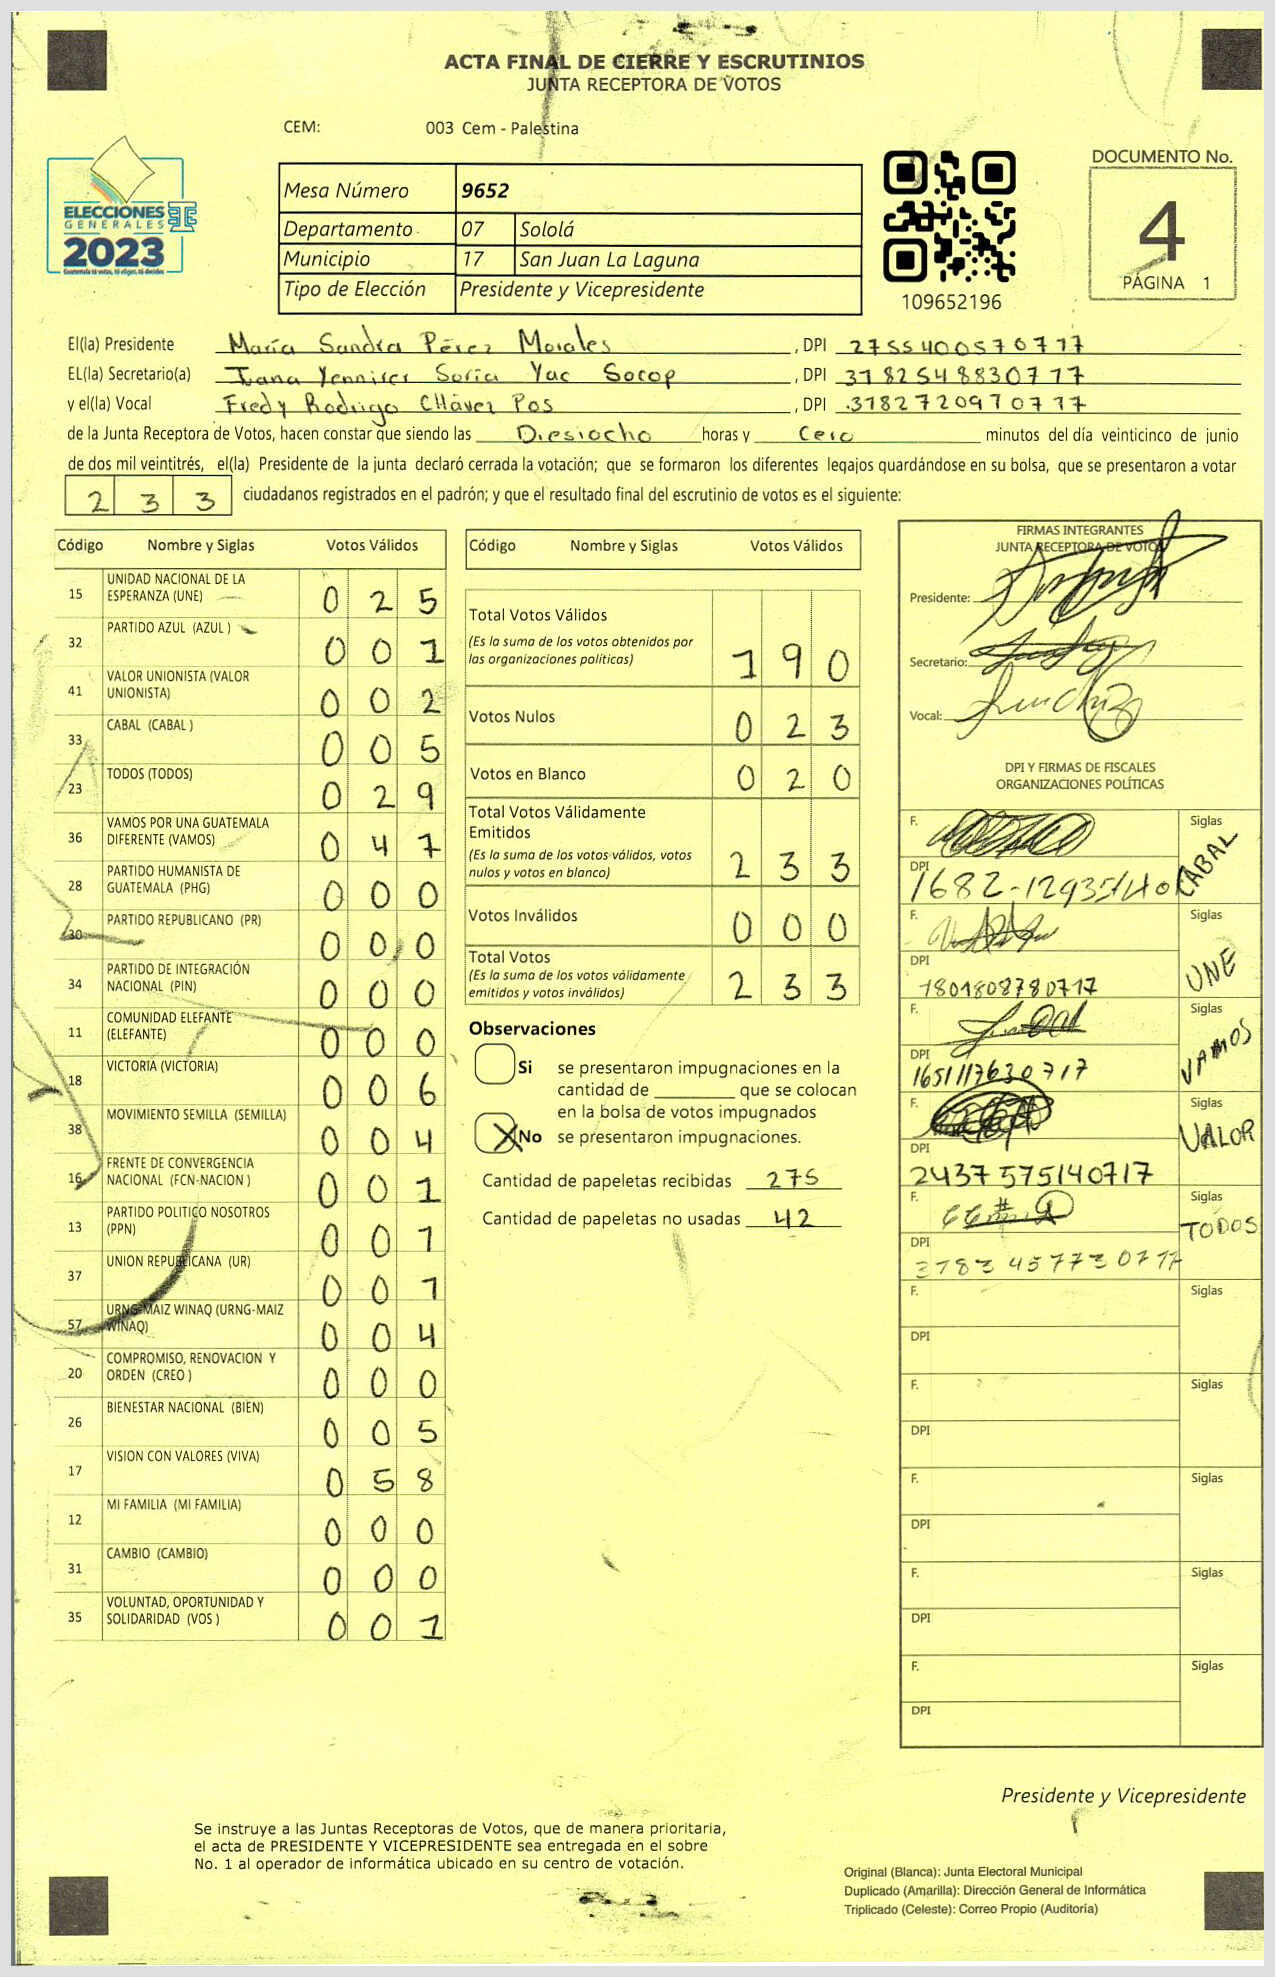 ACTA FINAL DE CIERRE Y ESCRUTINIOS
JUNTA RECEPTORA DE VOTOS
CEM: 003 Cem - Palestina
ELECCIONES
GENERALES
2023
Guatemala tú votas, tú eliges, tú decides
Mesa Número 9652
Departamento 07 Sololá
Municipio 17 San Juan La Laguna
Tipo de Elección Presidente y Vicepresidente
109652196
DOCUMENTO No.
4
PÁGINA 1
El(la) Presidente María Sandra Pérez Morales , DPI 2755400570717
EL(la) Secretario(a) Yac Socop , DPI 3182548830717
y el(la) Vocal Fredy Rodrigo CHávez Pos , DPI 3182720970717
de la Junta Receptora de Votos, hacen constar que siendo las Diesiocho horas y Cero minutos del día veinticinco de junio
de dos mil veintitrés, el(la) Presidente de la junta declaró cerrada la votación; que se formaron los diferentes legajos quardándose en su bolsa, que se presentaron a votar
233 ciudadanos registrados en el padrón; y que el resultado final del escrutinio de votos es el siguiente:
Código Nombre y Siglas Votos Válidos
15 UNIDAD NACIONAL DE LA ESPERANZA (UNE) 025
32 PARTIDO AZUL (AZUL ) 001
41 VALOR UNIONISTA (VALOR UNIONISTA) 002
33 CABAL (CABAL ) 005
23 TODOS (TODOS) 029
36 VAMOS POR UNA GUATEMALA DIFERENTE (VAMOS) 047
28 PARTIDO HUMANISTA DE GUATEMALA (PHG) 000
30 PARTIDO REPUBLICANO (PR) 000
34 PARTIDO DE INTEGRACIÓN NACIONAL (PIN) 000
11 COMUNIDAD ELEFANTE (ELEFANTE) 000
18 VICTORIA (VICTORIA) 006
38 MOVIMIENTO SEMILLA (SEMILLA) 004
16 FRENTE DE CONVERGENCIA NACIONAL (FCN-NACION ) 001
13 PARTIDO POLITICO NOSOTROS (PPN) 001
37 UNION REPUBLICANA (UR) 001
57 URNG-MAIZ WINAQ (URNG-MAIZ WINAQ) 004
20 COMPROMISO, RENOVACION Y ORDEN (CREO ) 000
26 BIENESTAR NACIONAL (BIEN) 005
17 VISION CON VALORES (VIVA) 058
12 MI FAMILIA (MI FAMILIA) 000
31 CAMBIO (CAMBIO) 000
35 VOLUNTAD, OPORTUNIDAD Y SOLIDARIDAD (VOS ) 001
Código Nombre y Siglas Votos Válidos
Total Votos Válidos
(Es la suma de los votos obtenidos por
las organizaciones políticas) 190
Votos Nulos 023
Votos en Blanco 020
Total Votos Válidamente
Emitidos
(Es la suma de los votos válidos, votos
nulos y votos en blanco) 233
Votos Inválidos 000
Total Votos
(Es la suma de los votos válidamente
emitidos y votos inválidos) 233
Observaciones
Si se presentaron impugnaciones en la
cantidad de ________ que se colocan
en la bolsa de votos impugnados
X No se presentaron impugnaciones.
Cantidad de papeletas recibidas 275
Cantidad de papeletas no usadas 42
FIRMAS INTEGRANTES
JUNTA RECEPTORA DE VOTOS
Presidente:
Secretario:
Vocal:
DPI Y FIRMAS DE FISCALES
ORGANIZACIONES POLÍTICAS
F. Siglas
CABAL
DPI
F. Siglas
UNE
DPI
1801808780717
F. Siglas
VAMOS
DPI
1651117630717
F. Siglas
VALOR
DPI
2437575140717
F. Siglas
TODOS
DPI
3183457730717
F. Siglas
DPI
F. Siglas
DPI
F. Siglas
DPI
F. Siglas
DPI
F. Siglas
DPI
Presidente y Vicepresidente
Se instruye a las Juntas Receptoras de Votos, que de manera prioritaria,
el acta de PRESIDENTE Y VICEPRESIDENTE sea entregada en el sobre
No. 1 al operador de informática ubicado en su centro de votación.
Original (Blanca): Junta Electoral Municipal
Duplicado (Amarilla): Dirección General de Informática
Triplicado (Celeste): Correo Propio (Auditoría)